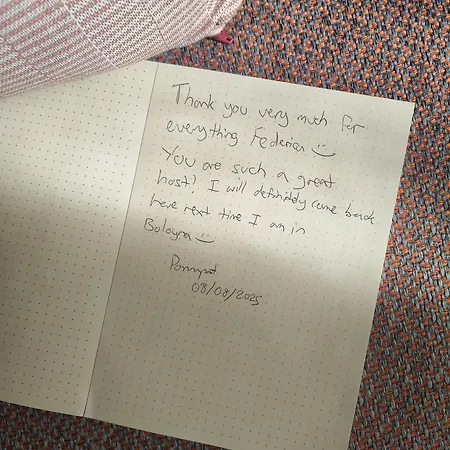 Thank you very much for
everything Federica :)
You are such a great
host! I will definitely come back
here next time I am in
Bologna :)
08/08/2025